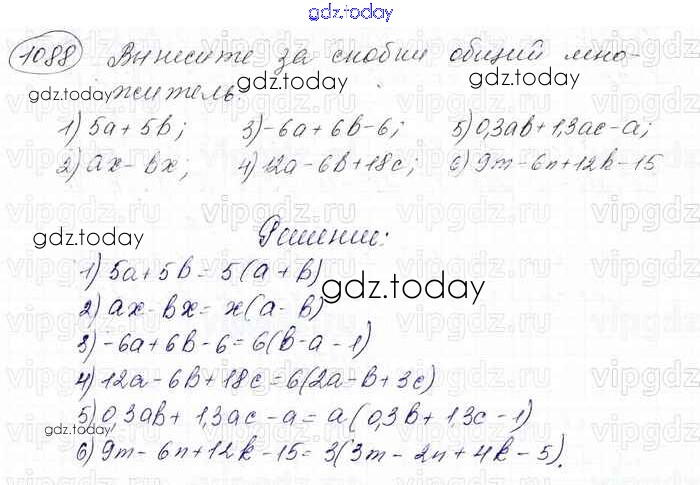 gdz.today
1088 Вынесите за скобки общий мно-
житель.
gdz.today gdz.today gdz.today
1) 5a + 5b; 3) -6a + 6b - 6; 5) 0,3ab + 1,3ac - a;
2) ax - bx; 4) 12a - 6b + 18c; 6) 9m - 6n + 12k - 15
gdz.today
Решение:
1) 5a + 5b = 5(a + b)
2) ax - bx = x(a - b)
gdz.today
3) -6a + 6b - 6 = 6(b - a - 1)
4) 12a - 6b + 18c = 6(2a - b + 3c)
5) 0,3ab + 1,3ac - a = a(0,3b + 1,3c - 1)
6) 9m - 6n + 12k - 15 = 3(3m - 2n + 4k - 5).